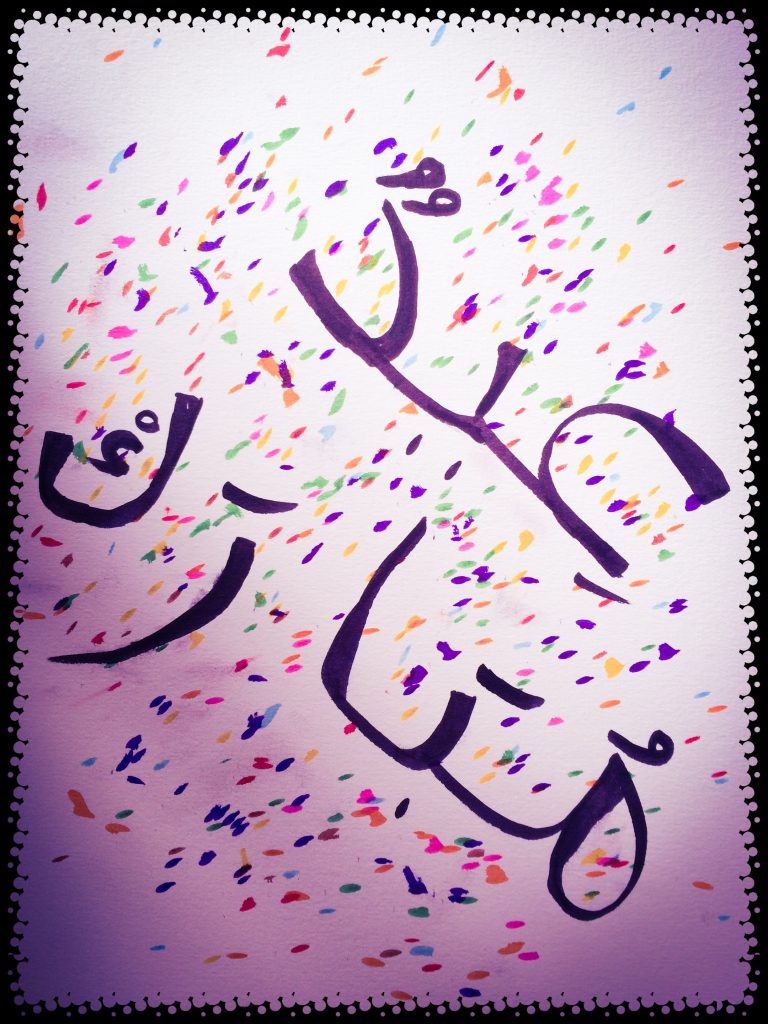 عِيدٌ
مُبَارَكْ